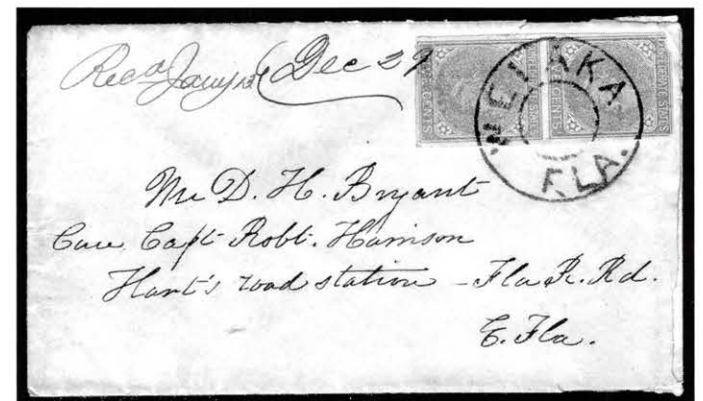 Recd Jany Dec 29
WELAKA
FLA.
CENTS
CENTS
STATES
Mr D. H. Bryant
Care Capt Robt. Harrison
Hart's road station - Fla R. Rd.
E. Fla.